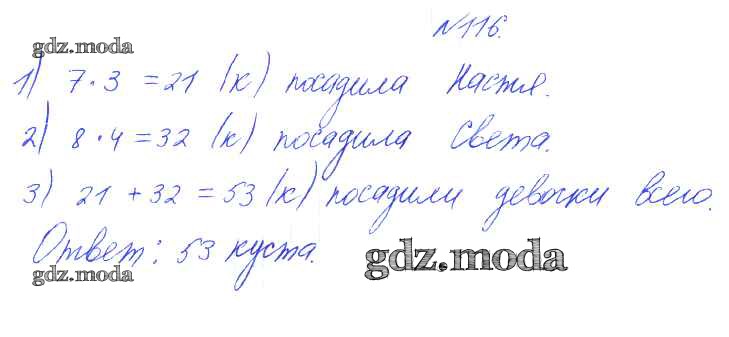 №116.
gdz.moda
1) 7·3 =21 (к) посадила Настя.
2) 8·4=32 (к) посадила Света.
3) 21+32=53 (к) посадили девочки всего.
Ответ: 53 куста.
gdz.moda
gdz.moda